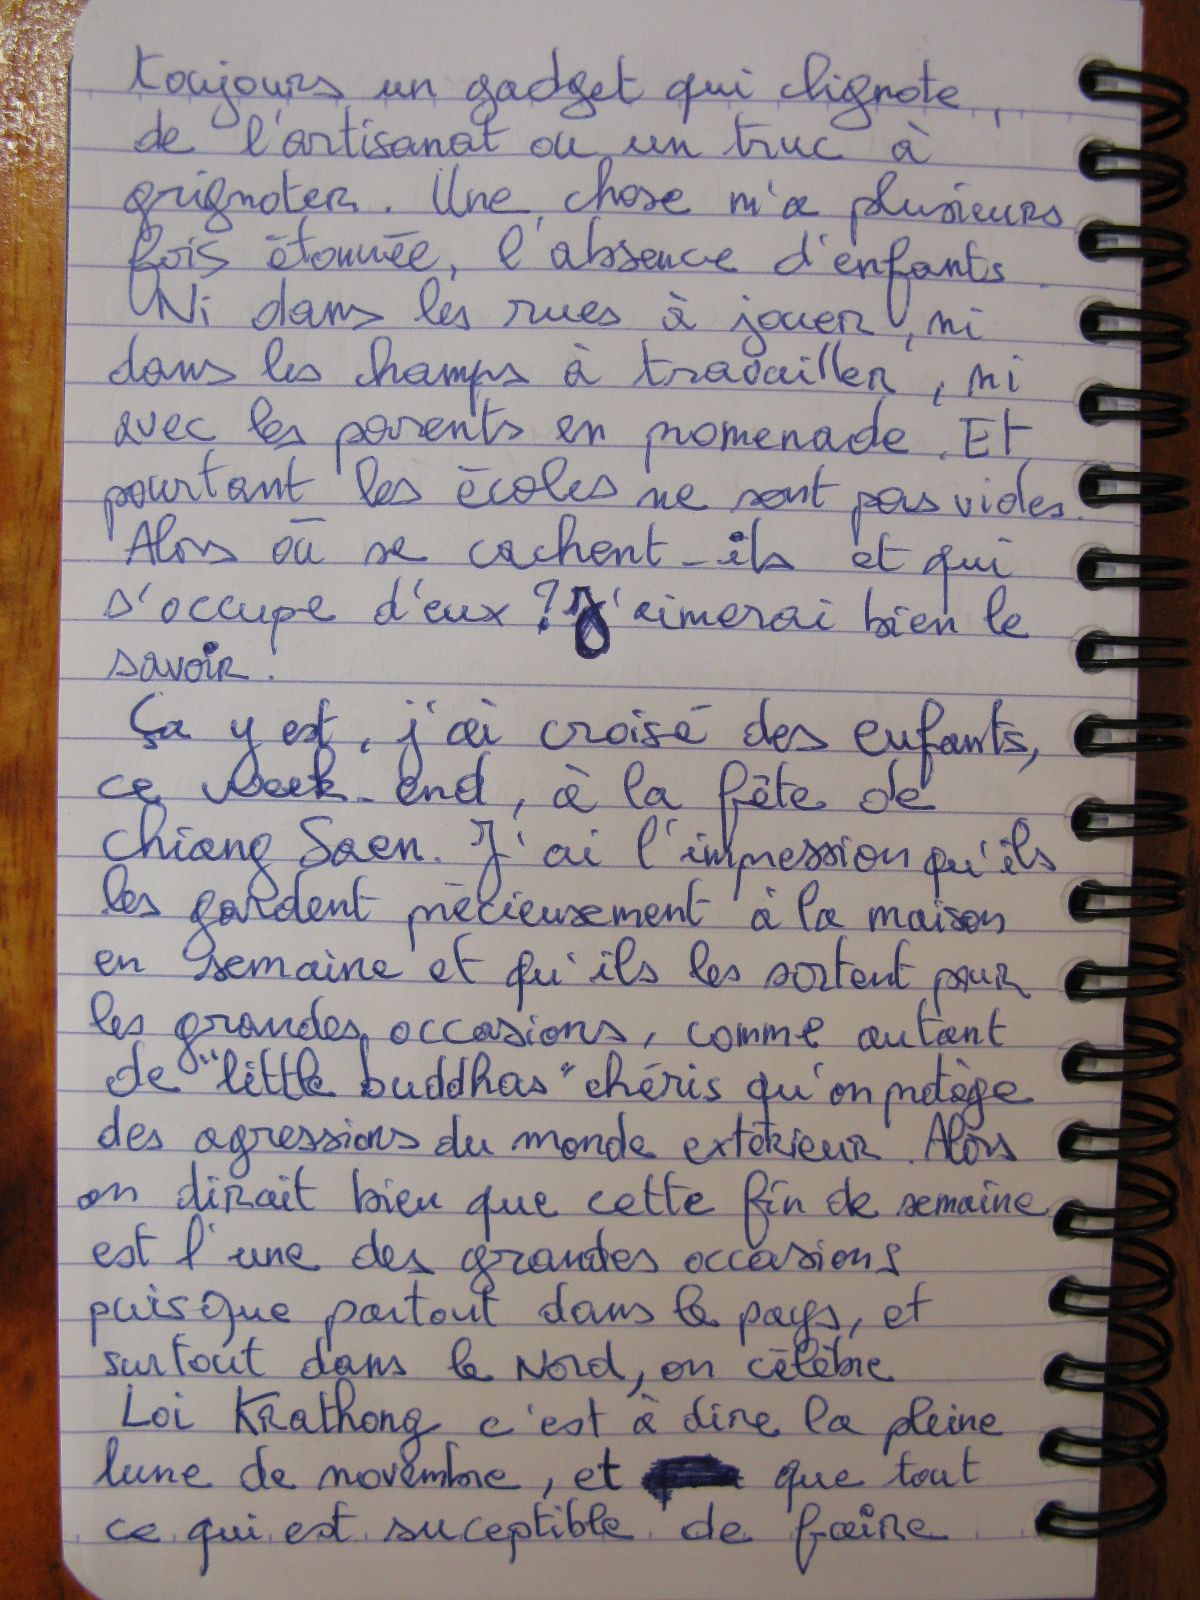 toujours un gadget qui clignote,
de l'artisanat ou un truc à
grignoter. Une chose m'a plusieurs
fois étonnée, l'absence d'enfants.
Ni dans les rues à jouer, ni
dans les champs à travailler, ni
avec les parents en promenade. Et
pourtant les écoles ne sont pas vides.
Alors où se cachent-ils et qui
s'occupe d'eux ? J'aimerai bien le
savoir.
Ça y est, j'ai croisé des enfants,
ce week-end, à la fête de
Chiang Saen. J'ai l'impression qu'ils
les gardent précieusement à la maison
en semaine et qu'ils les sortent pour
les grandes occasions, comme autant
de "little buddhas" chéris qu'on protège
des agressions du monde extérieur. Alors
on dirait bien que cette fin de semaine
est l'une des grandes occasions
puisque partout dans le pays, et
surtout dans le Nord, on célèbre
Loi Krathong c'est à dire la pleine
lune de novembre, et que tout
ce qui est suceptible de faire